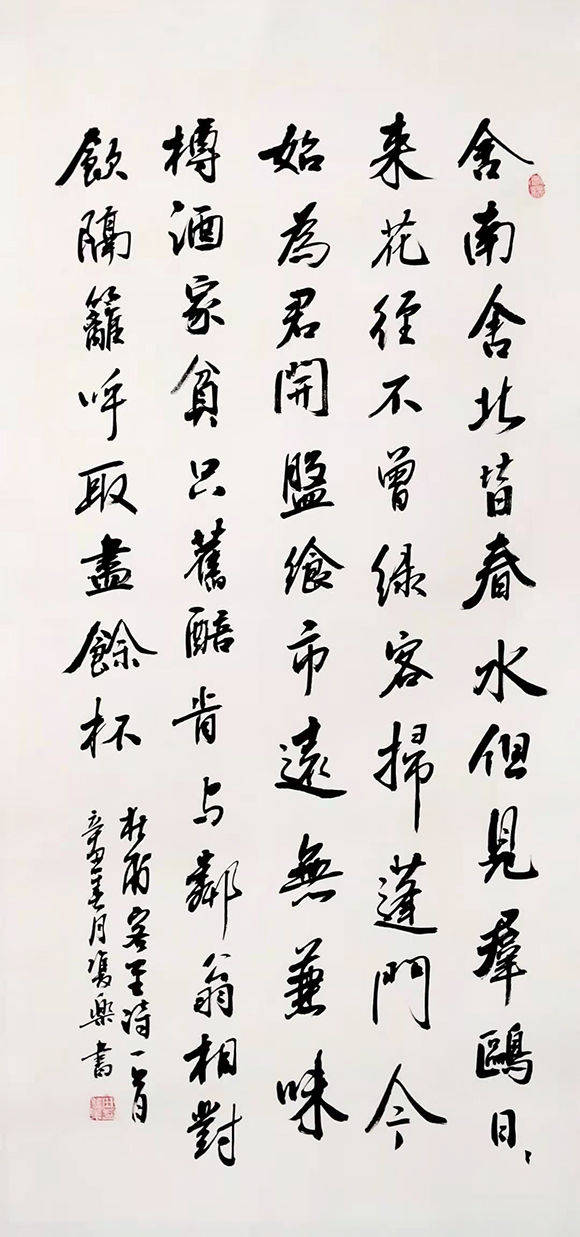 舍南舍北皆春水但見羣鷗日、
来花徑不曾緑客掃蓬門今
始為君開盤飧市遠無兼味
樽酒家貧只舊醅肯与鄰翁相對
飲隔籬呼取盡餘杯
杜甫客至詩一首
辛丑月樂書